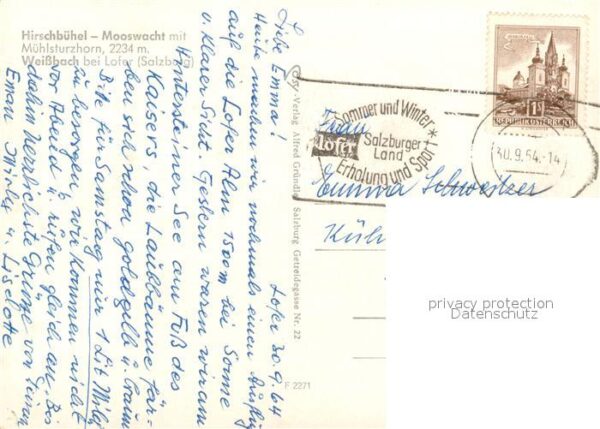 Hirschbühel – Mooswacht mit
Mühlsturzhorn, 2234 m.
Weißbach bei Lofer (Salzburg)
Lofer 30.9.64
Liebe Emma!
Heute machen wir nochmals einen Ausflug
auf die Lofer Alm 1500m bei Sonne
u. klarer Sicht. Gestern waren wir am
Hintersteiner See am Fuß des
Kaisers, die Laubbäume fär-
ben sich schon goldgelb u. braun
Bitte für Samstag nur 1 Lit Milch
zu besorgen wir kommen nicht
vor Abend u. rufen gleich an. Bis
dahin herzlichste Grüße von Deinen
u. Liselotte
Cosy-Verlag Alfred Gründler Salzburg Getreidegasse Nr. 22
F 2271
Sommer und Winter
Lofer
Salzburger
Land
Erholung und Sport
30.9.64-14
1S
REPUBLIK ÖSTERREICH
Frau
Emma Schweitzer
privacy protection
Datenschutz